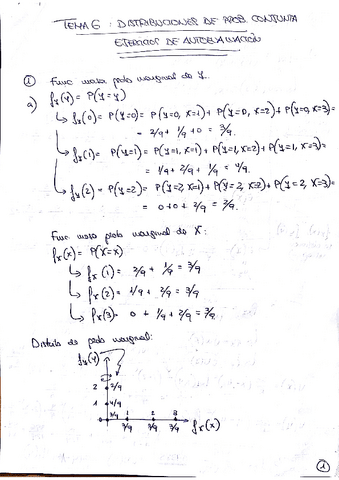 TEMA 6: DISTRIBUCIONES DE PROB. CONJUNTA
EJERCICIOS DE AUTOEVALUACIÓN
① Func masa prob marginal de Y.
a) fy(y) = P(Y=y)
↳ fy(0) = P(Y=0) = P(Y=0, X=1) + P(Y=0, X=2) + P(Y=0, X=3) =
= 2/9 + 1/9 + 0 = 3/9.
↳ fy(1) = P(Y=1) = P(Y=1, X=1) + P(Y=1, X=2) + P(Y=1, X=3) =
= 1/9 + 2/9 + 1/9 = 4/9.
↳ fy(2) = P(Y=2) = P(Y=2, X=1) + P(Y=2, X=2) + P(Y=2, X=3) =
= 0 + 0 + 2/9 = 2/9.
Func masa prob marginal de X:
fx(x) = P(X=x)
↳ fx(1) = 2/9 + 1/9 = 3/9
↳ fx(2) = 1/9 + 2/9 = 3/9
↳ fx(3) = 0 + 1/9 + 2/9 = 3/9.
Distrib de prob marginal:
fy(y)
2 2/9
1 4/9
0 3/9 1 2 3
3/9 3/9 3/9 fx(x)
1